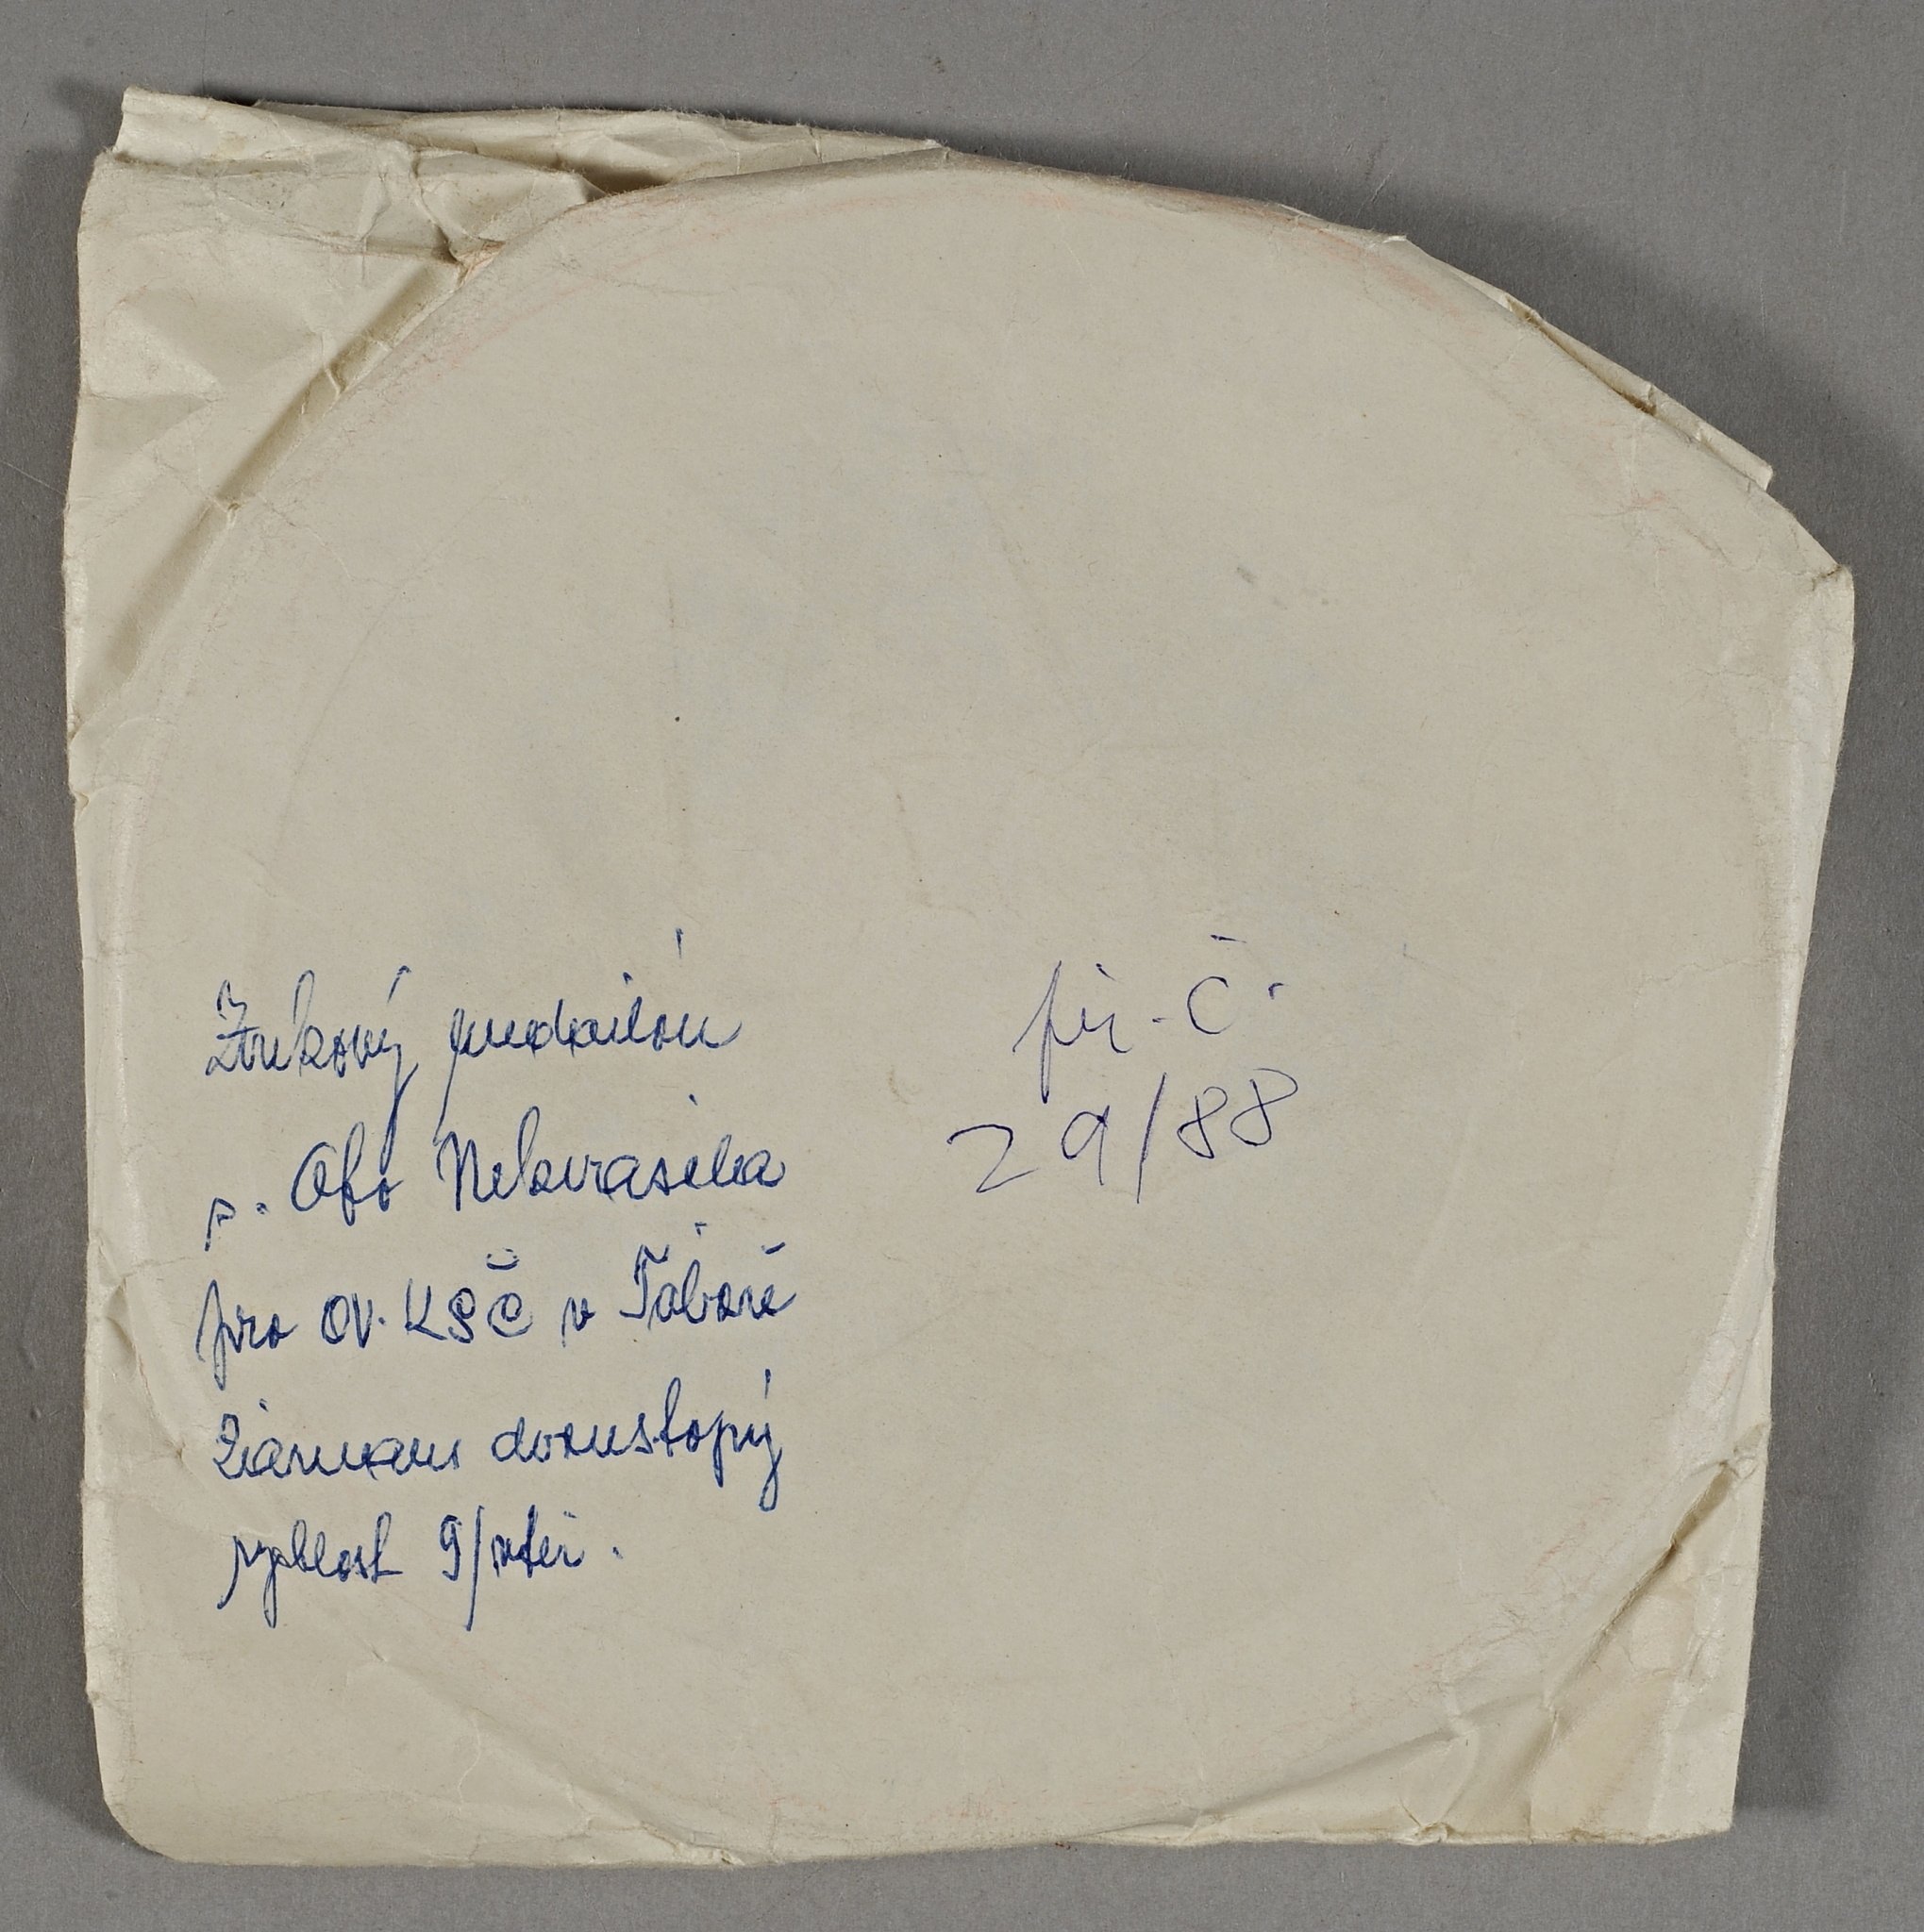 Zvukový medailón
s. Oty Nekvasila
pro OV. KSČ v Táboře
Záznam dvoustopý
rychlost 9/vteř.
př. č.
29/88